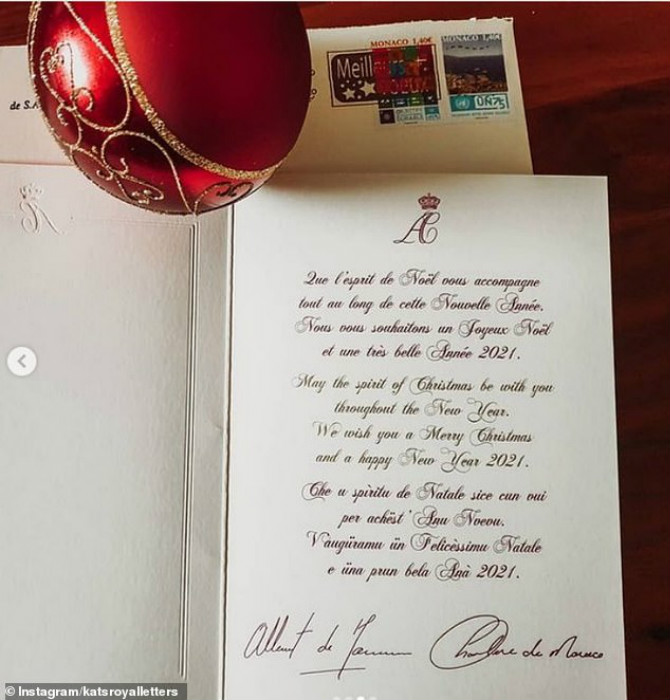 de S.A
MONACO 1,40€
MONACO 1,40€
AC
Que l'esprit de Noël vous accompagne
tout au long de cette Nouvelle Année.
Nous vous souhaitons un Joyeux Noël
et une très belle Année 2021.
May the spirit of Christmas be with you
throughout the New Year.
We wish you a Merry Christmas
and a happy New Year 2021.
Che u spìritu de Natale sice cun vui
per achëst' Anu Noevu.
V'augüramu ün Felicèssimu Natale
e üna prun bela Anà 2021.
Albert de Monaco
Charlene de Monaco
© Instagram/katsroyalletters